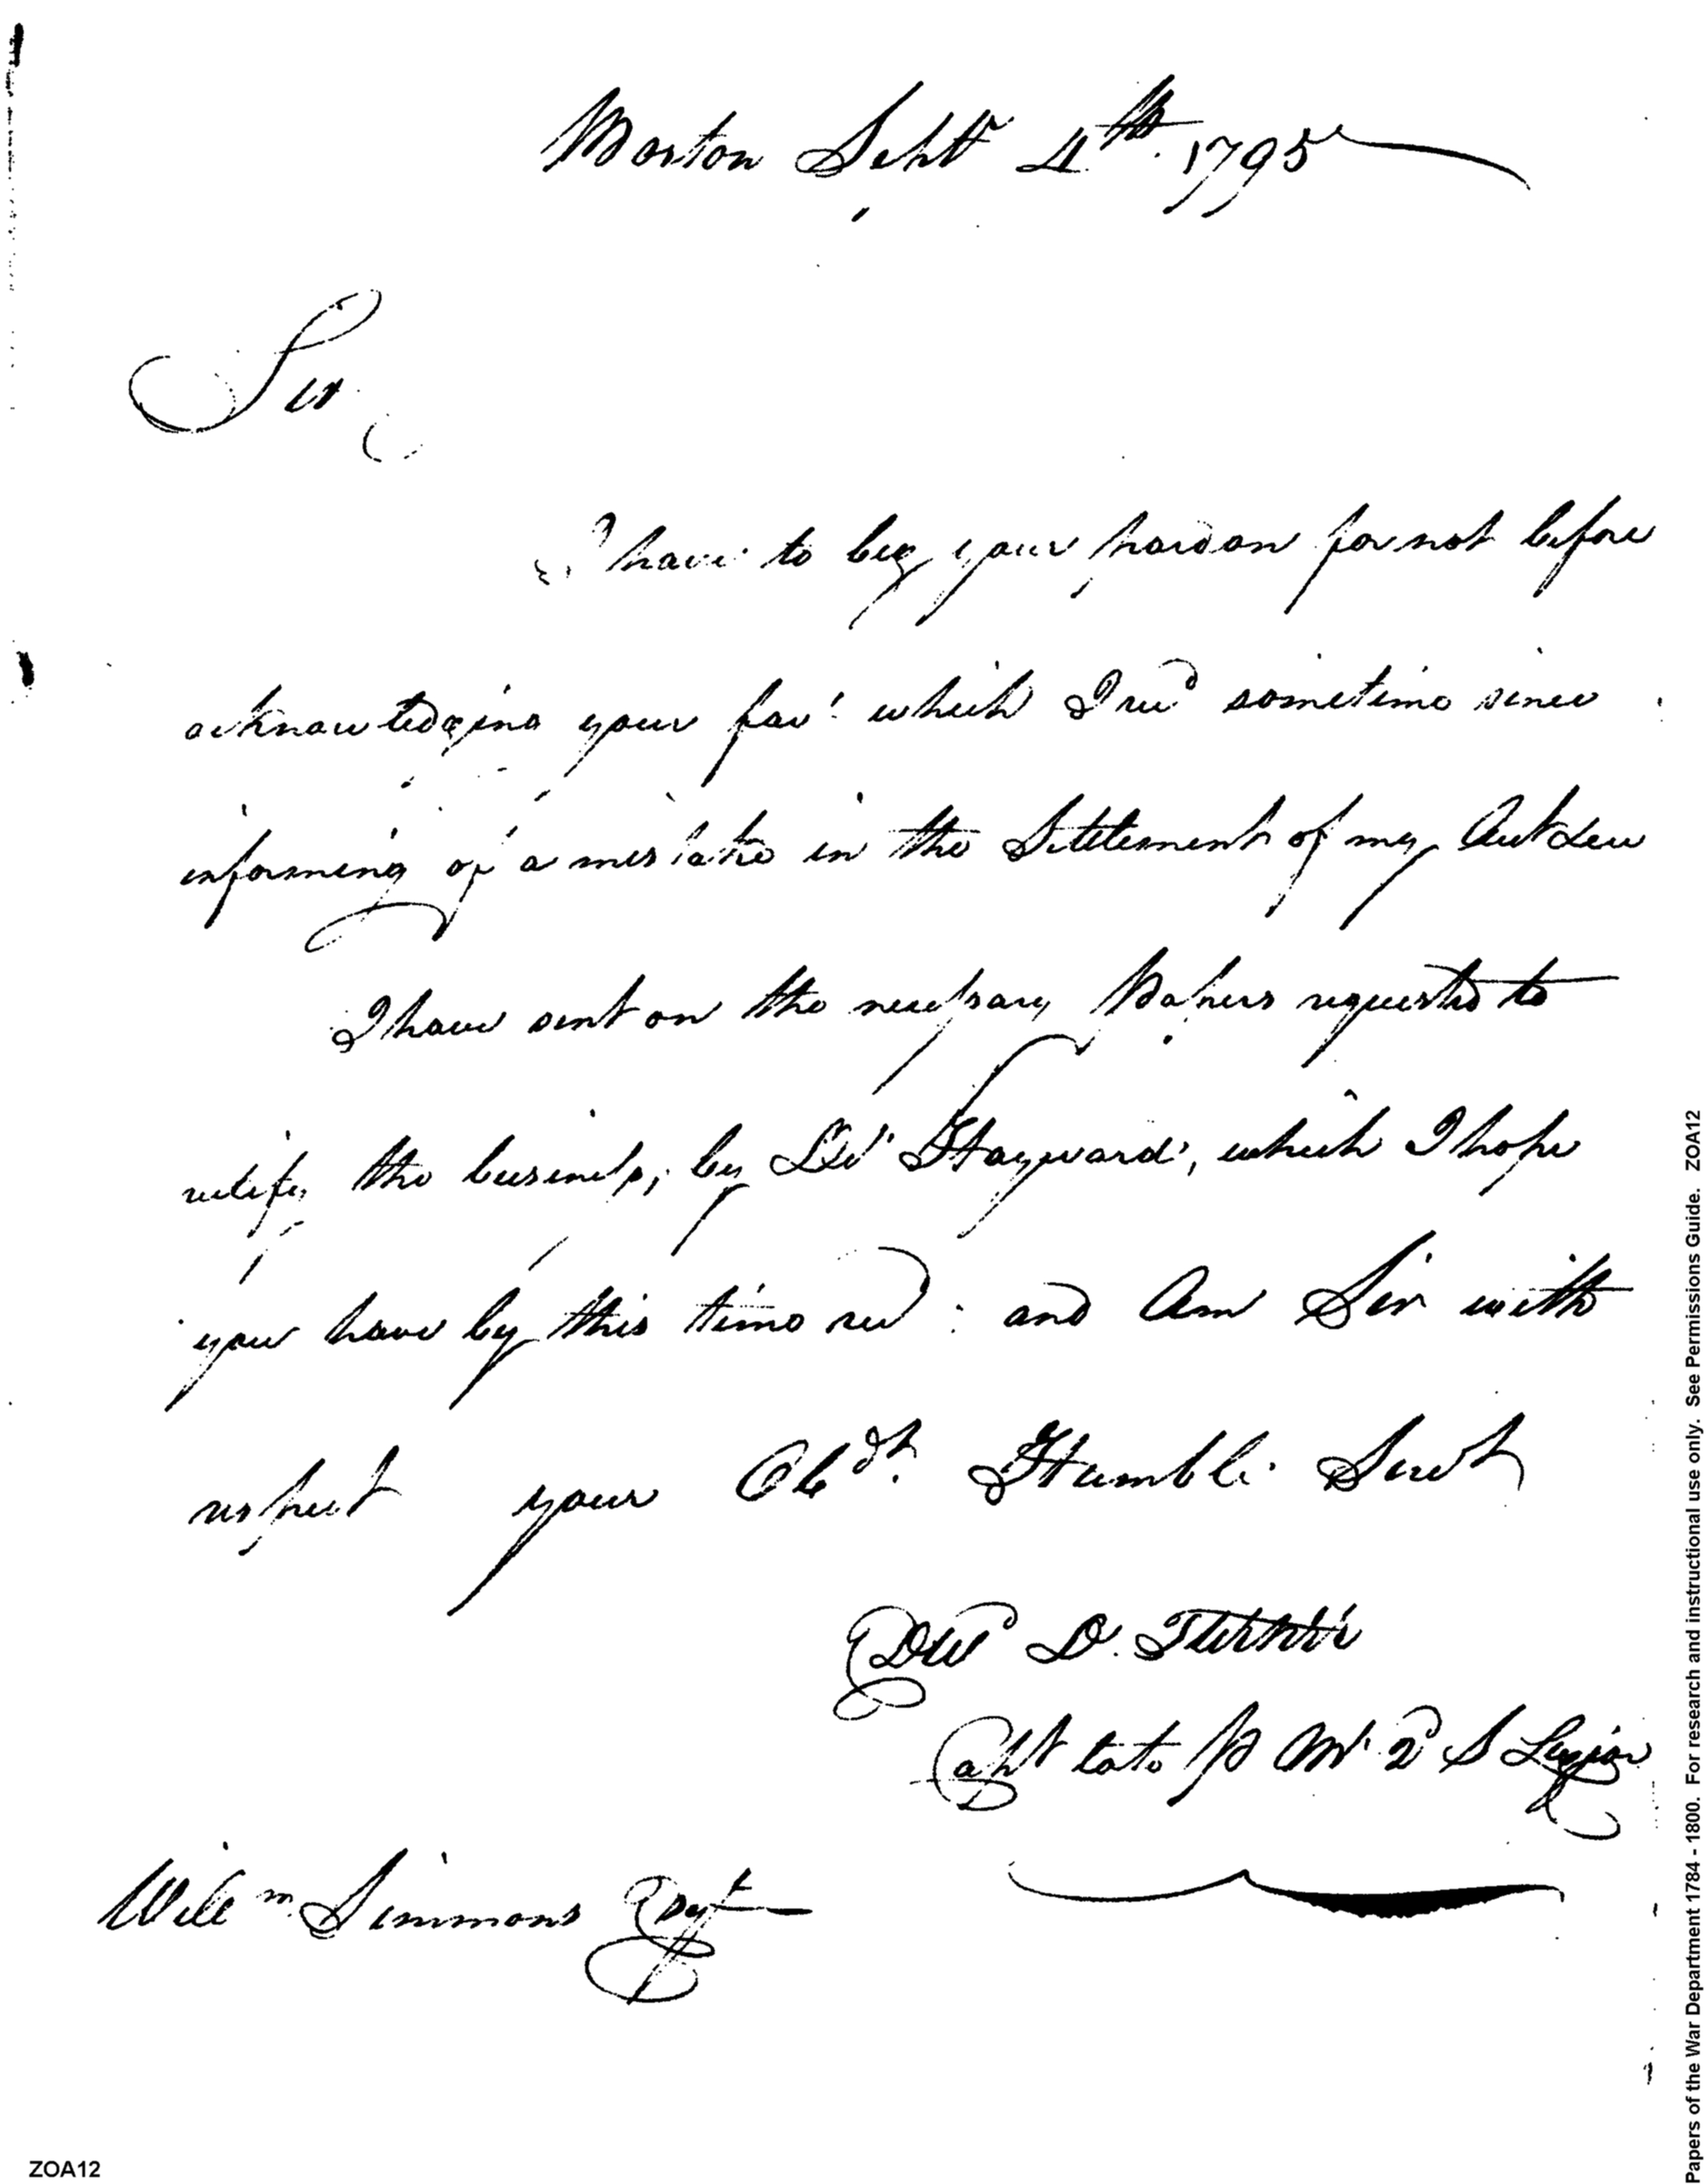 Boston Sept 4th. 1795
Sir
I have to beg your pardon for not before
acknowledging your favr. which I recd sometime since
informing of a mistake in the Settlement of my
I have sent on the necessary Papers requested to
rectify the business, by Lt Hayward, which I hope
you have by this time recd: and Am Sir with
respect your Obdt. Humble Servt
Edwd D. Turner
Capt late P Mr 2d S Legion
Willm. Simmons Esqr
ZOA12
Papers of the War Department 1784 - 1800. For research and instructional use only. See Permissions Guide. ZOA12